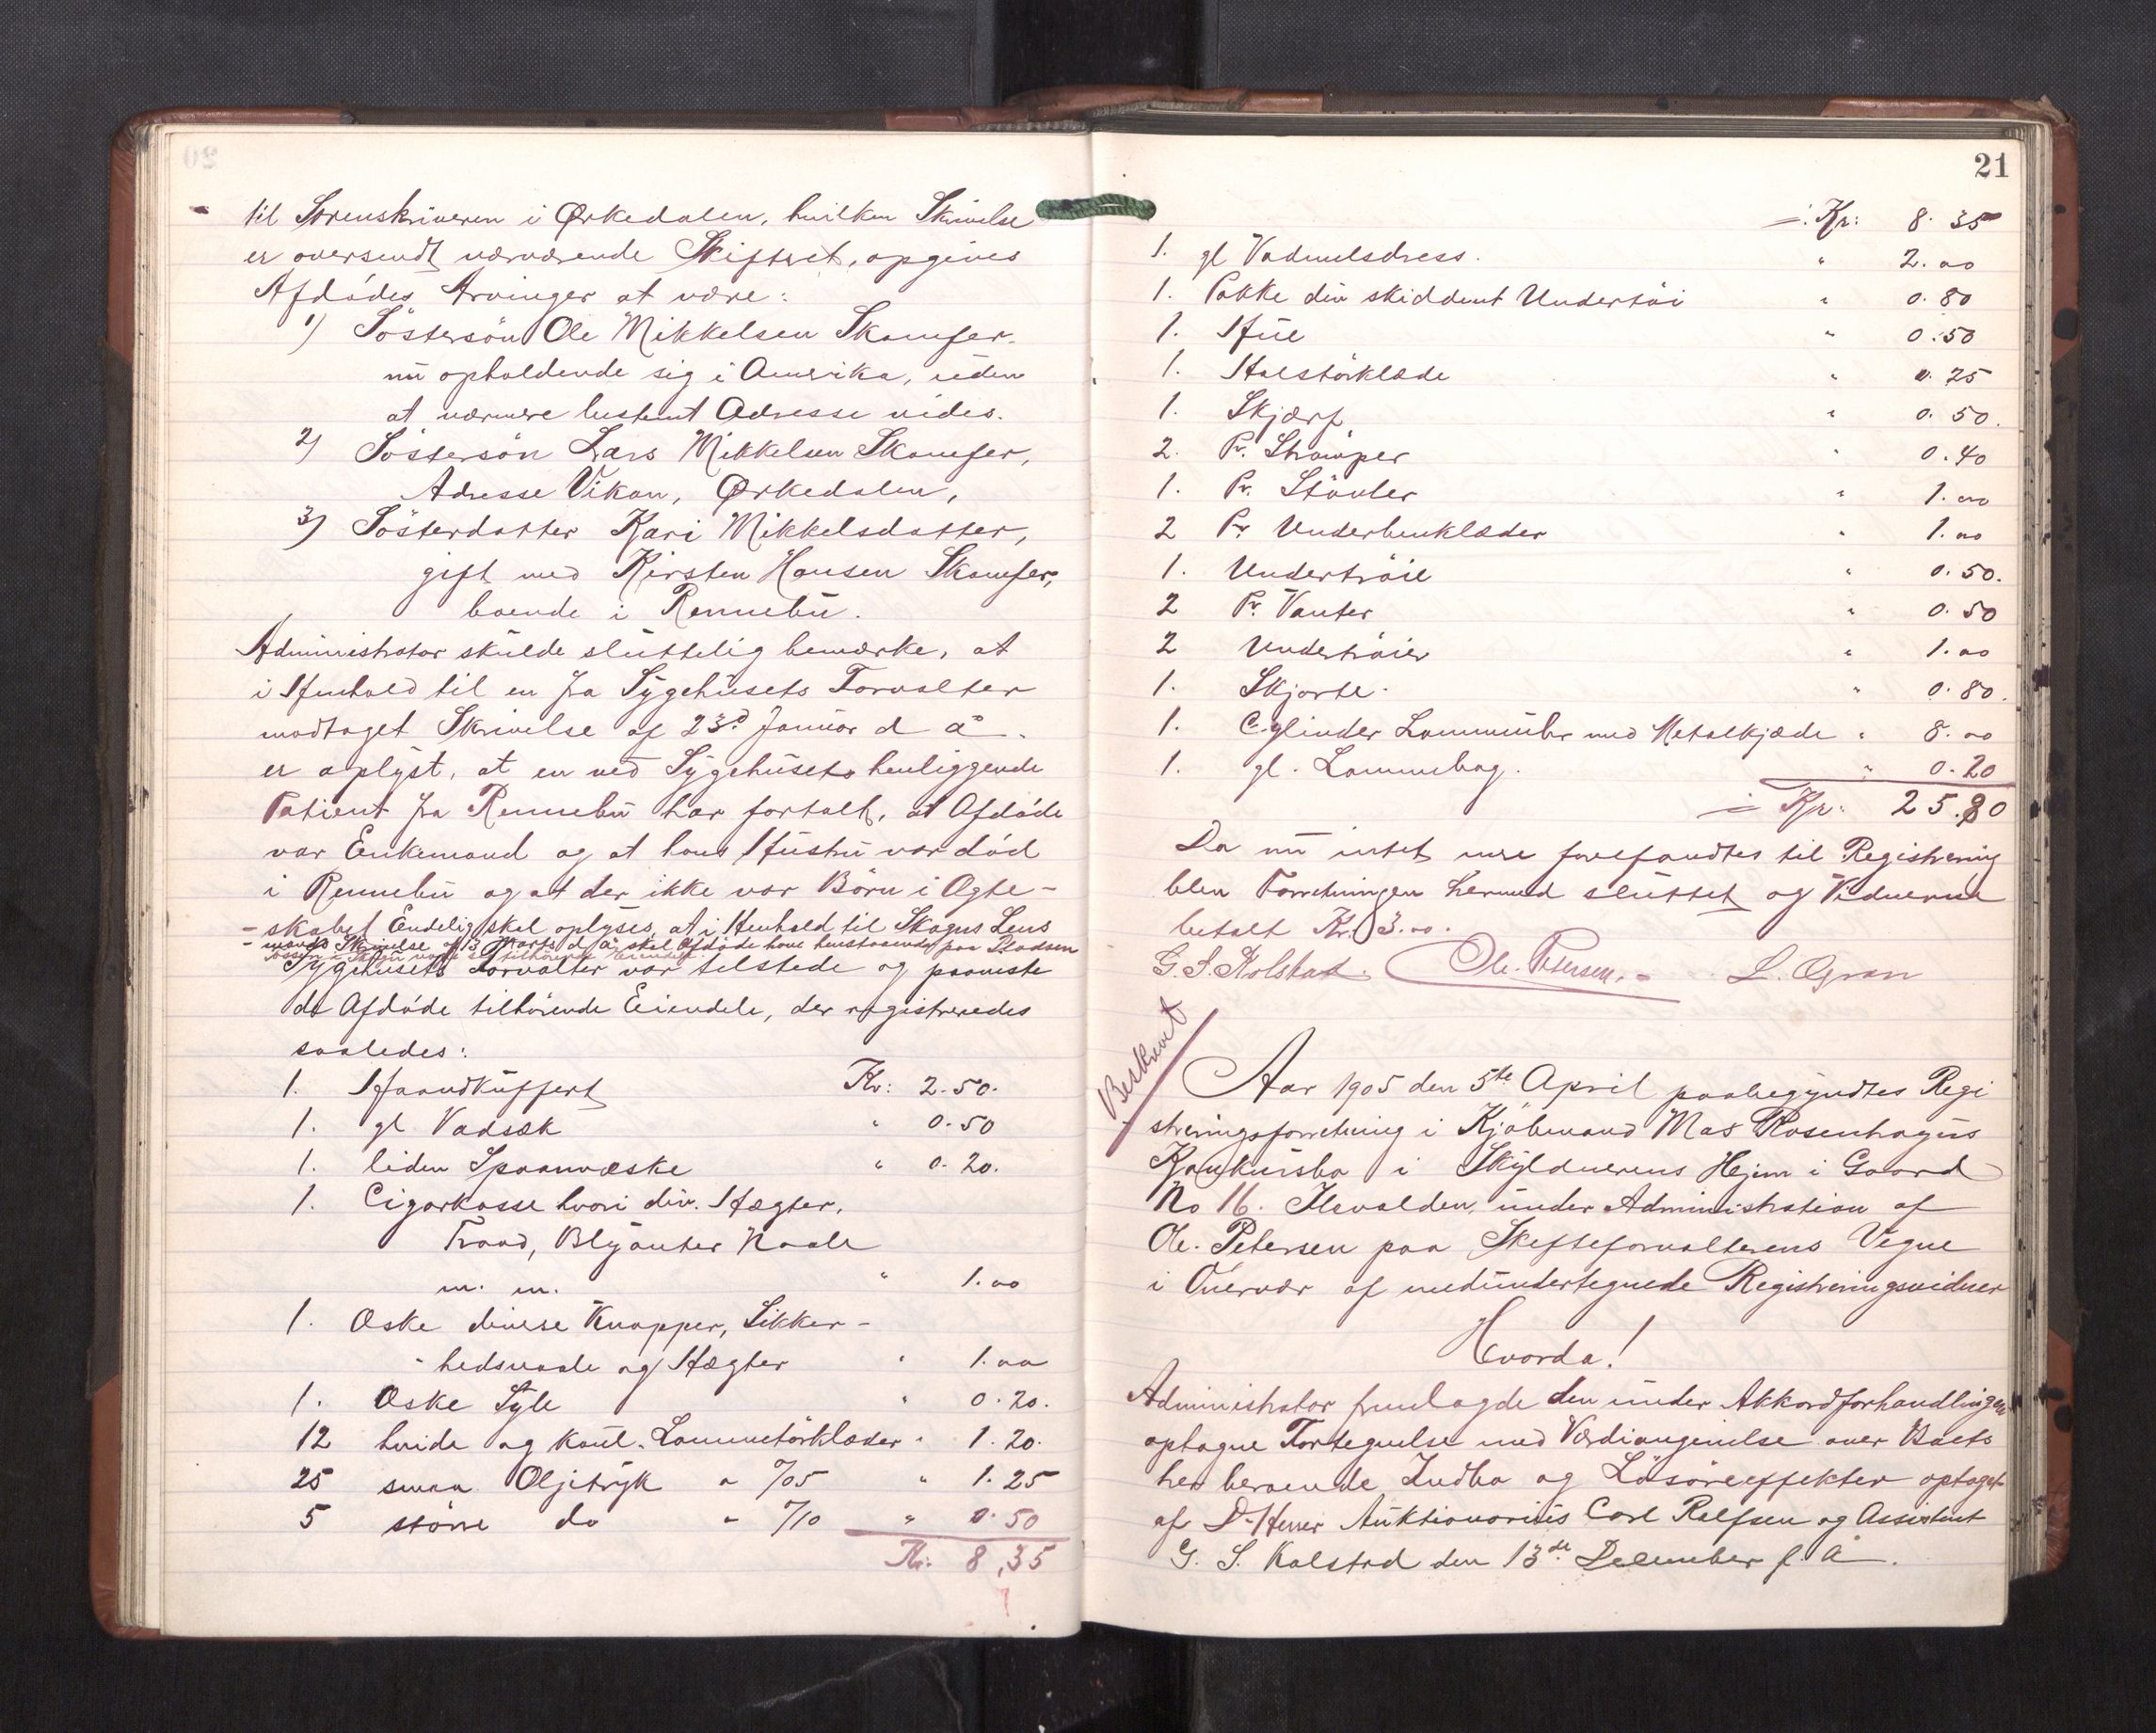 til Sorenskriveren i Ørkedalen, hvilken Skrivelse
er oversendt nærværende Skifteret, opgives
Afdødes Arvinger at være:
1) Søstersøn Ole Mikkelsen Skamfer.
nu opholdende sig i Amerika, uden
at nærmere bestemt Adresse vides.
2) Søstersøn Lars Mikkelsen Skamfer,
Adresse Vikan, Ørkedalen,
3) Søsterdatter Kari Mikkelsdatter,
gift med Kirsten Hansen Skamfer,
boende i Rennebu.
Administrator skulde sluttelig bemærke, at
i Henhold til en fra Sygehusets Forvalter
modtaget Skrivelse af 23d Januar d å.
er oplyst, at en ved Sygehuset henliggende
Patient fra Rennebu har fortalt, at Afdøde
var Enkemand og at hans Hustru var død
i Rennebu og at der ikke var Børn i Ægte-
-skabet Endelig skal oplyses, at i Henhold til Skogns Lens
-mands Skrivelse af 13 Marts d. å. skal Afdøde have henstaaende paa Pladsen
Sygehusets Forvalter var tilstede og paaviste
de Afdøde tilhørende Eiendele, der registreredes
saaledes:
1. Haandkuffert Kr: 2.50.
1. gl Vadsæk " 0.50
1. liden Spaanvæske " 0.20.
1. Cigarkasse hvori div. Hægter,
Traad, Blyanter Naale
m. m. " 1.00
1. Æske diverse Knapper, Sikker-
-hedsnaale og Hægter " 1.00
1. Æske Syle " 0.20.
12 hvide og koul. Lommetørklæder " 1.20.
25 smaa Oljetryk a %05 " 1.25
5 større do " %10 " 0.50
Kr: 8,35
21
÷ Kr: 8.35
1. gl Vadmelsdress. " 2.00
1. Pakke div skiddent Undertøi " 0.80
1. Hue " 0.50
1. Halstørklæde " 0.25
1. Skjærf " 0.50.
2. Pr. Strømper " 0.40
1. Pr. Støvler " 1.00
2 Pr Underbenklæder " 1.00
1. Undertrøie " 0.50.
2 Pr. Vanter " 0.50
2 Undertrøier " 1.00
1. Skjorte. " 0.80.
1. Cylinder Lommeuhr med Metalkjæde " 8.00
1. gl. Lommebog. " 0.20
÷ Kr: 25.80
Da nu intet mere forefandtes til Registrering
blev Forretningen hermed sluttet og Vidnerne
betalt Kr. 3.00.
G. S. Kolstad. Ole. Petersen.- L. Gran
Beskrevet
Aar 1905 den 5te April paabegyndtes Regi
streringsforretning i Kjøbmand Mas Rosenhagns
Konkursbo i Skyldnerens Hejm i Gaard
No 16. Ilevolden, under Administration af
Ole. Petersen paa Skifteforvalterens Vegne
i Overvær af medundertegnede Registreringsvidner
Hvorda!
Administrator fremlagde den under Akkordforhandlingen
optagne Fortegnelse med Værdiangivelse over Boets
her beroende Indbo og Løsøreeffekter optaget
af D'Herrer Auktionarius Carl Rolfsen og Assistent
G. S. Kolstad den 13de December f. Å.